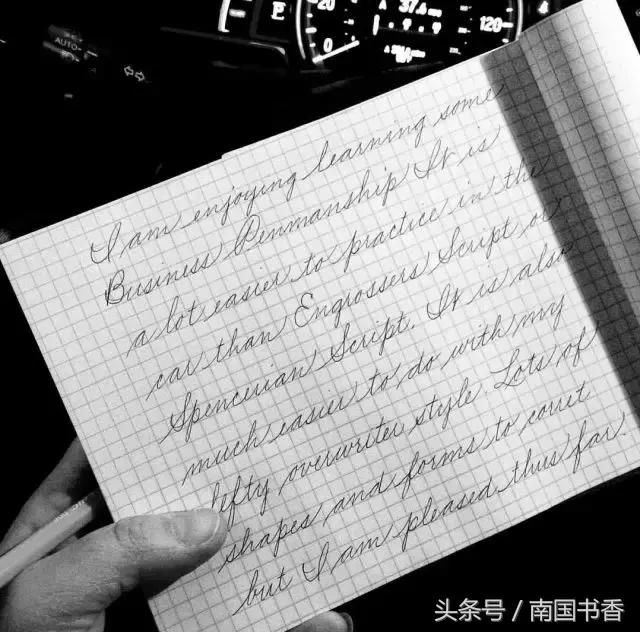 20
37.6
120
0
E
AUTO
I am enjoying learning some
Business Penmanship It is
a lot easier to practice in the
car than Engrossers Script or
Spencerian Script. It is also
much easier to do with my
lefty overwriter style. Lots of
shapes and forms to corret
but I am pleased thus far.
头条号 / 南国书香